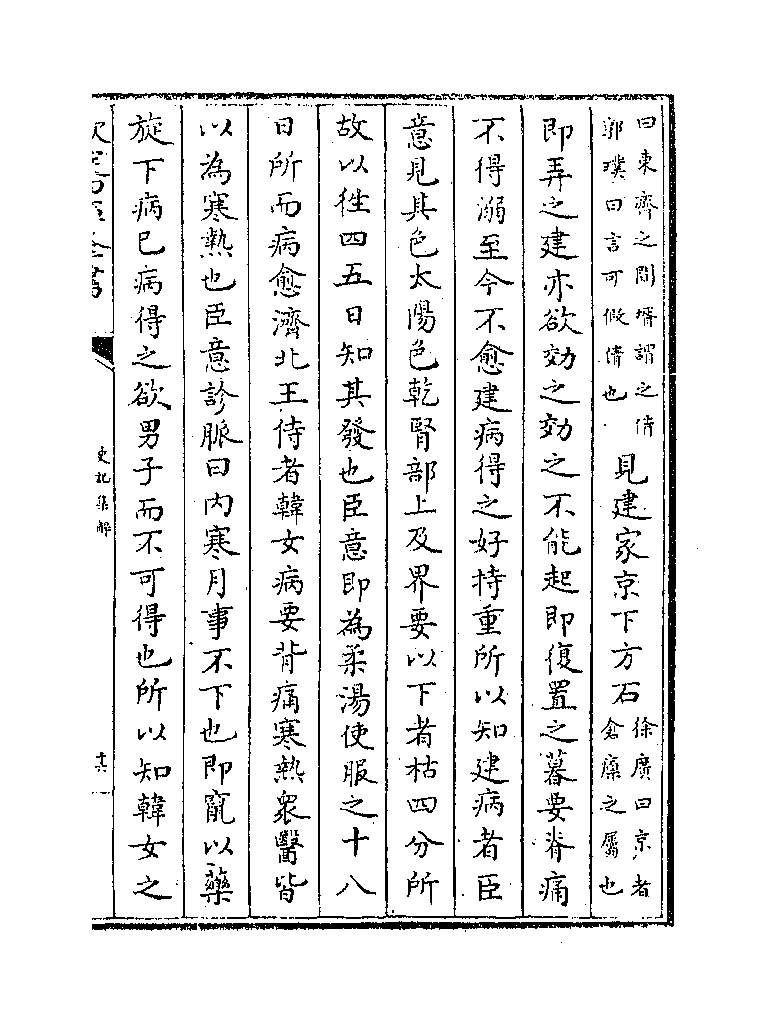 曰東齊之間壻謂之倩
郭璞曰言可假倩也
見建家京下方石
徐廣曰京者
倉廩之屬也
即弄之建亦欲効之効之不能起即復置之暮要脊痛
不得溺至今不愈建病得之好持重所以知建病者臣
意見其色太陽色乾腎部上及界要以下者枯四分所
故以徃四五日知其發也臣意即為柔湯使服之十八
日所而病愈濟北王侍者韓女病要背痛寒熱衆醫皆
以為寒熱也臣意診脈曰内寒月事不下也即竄以藥
旋下病已病得之欲男子而不可得也所以知韓女之
欽定四庫全書
史記集解